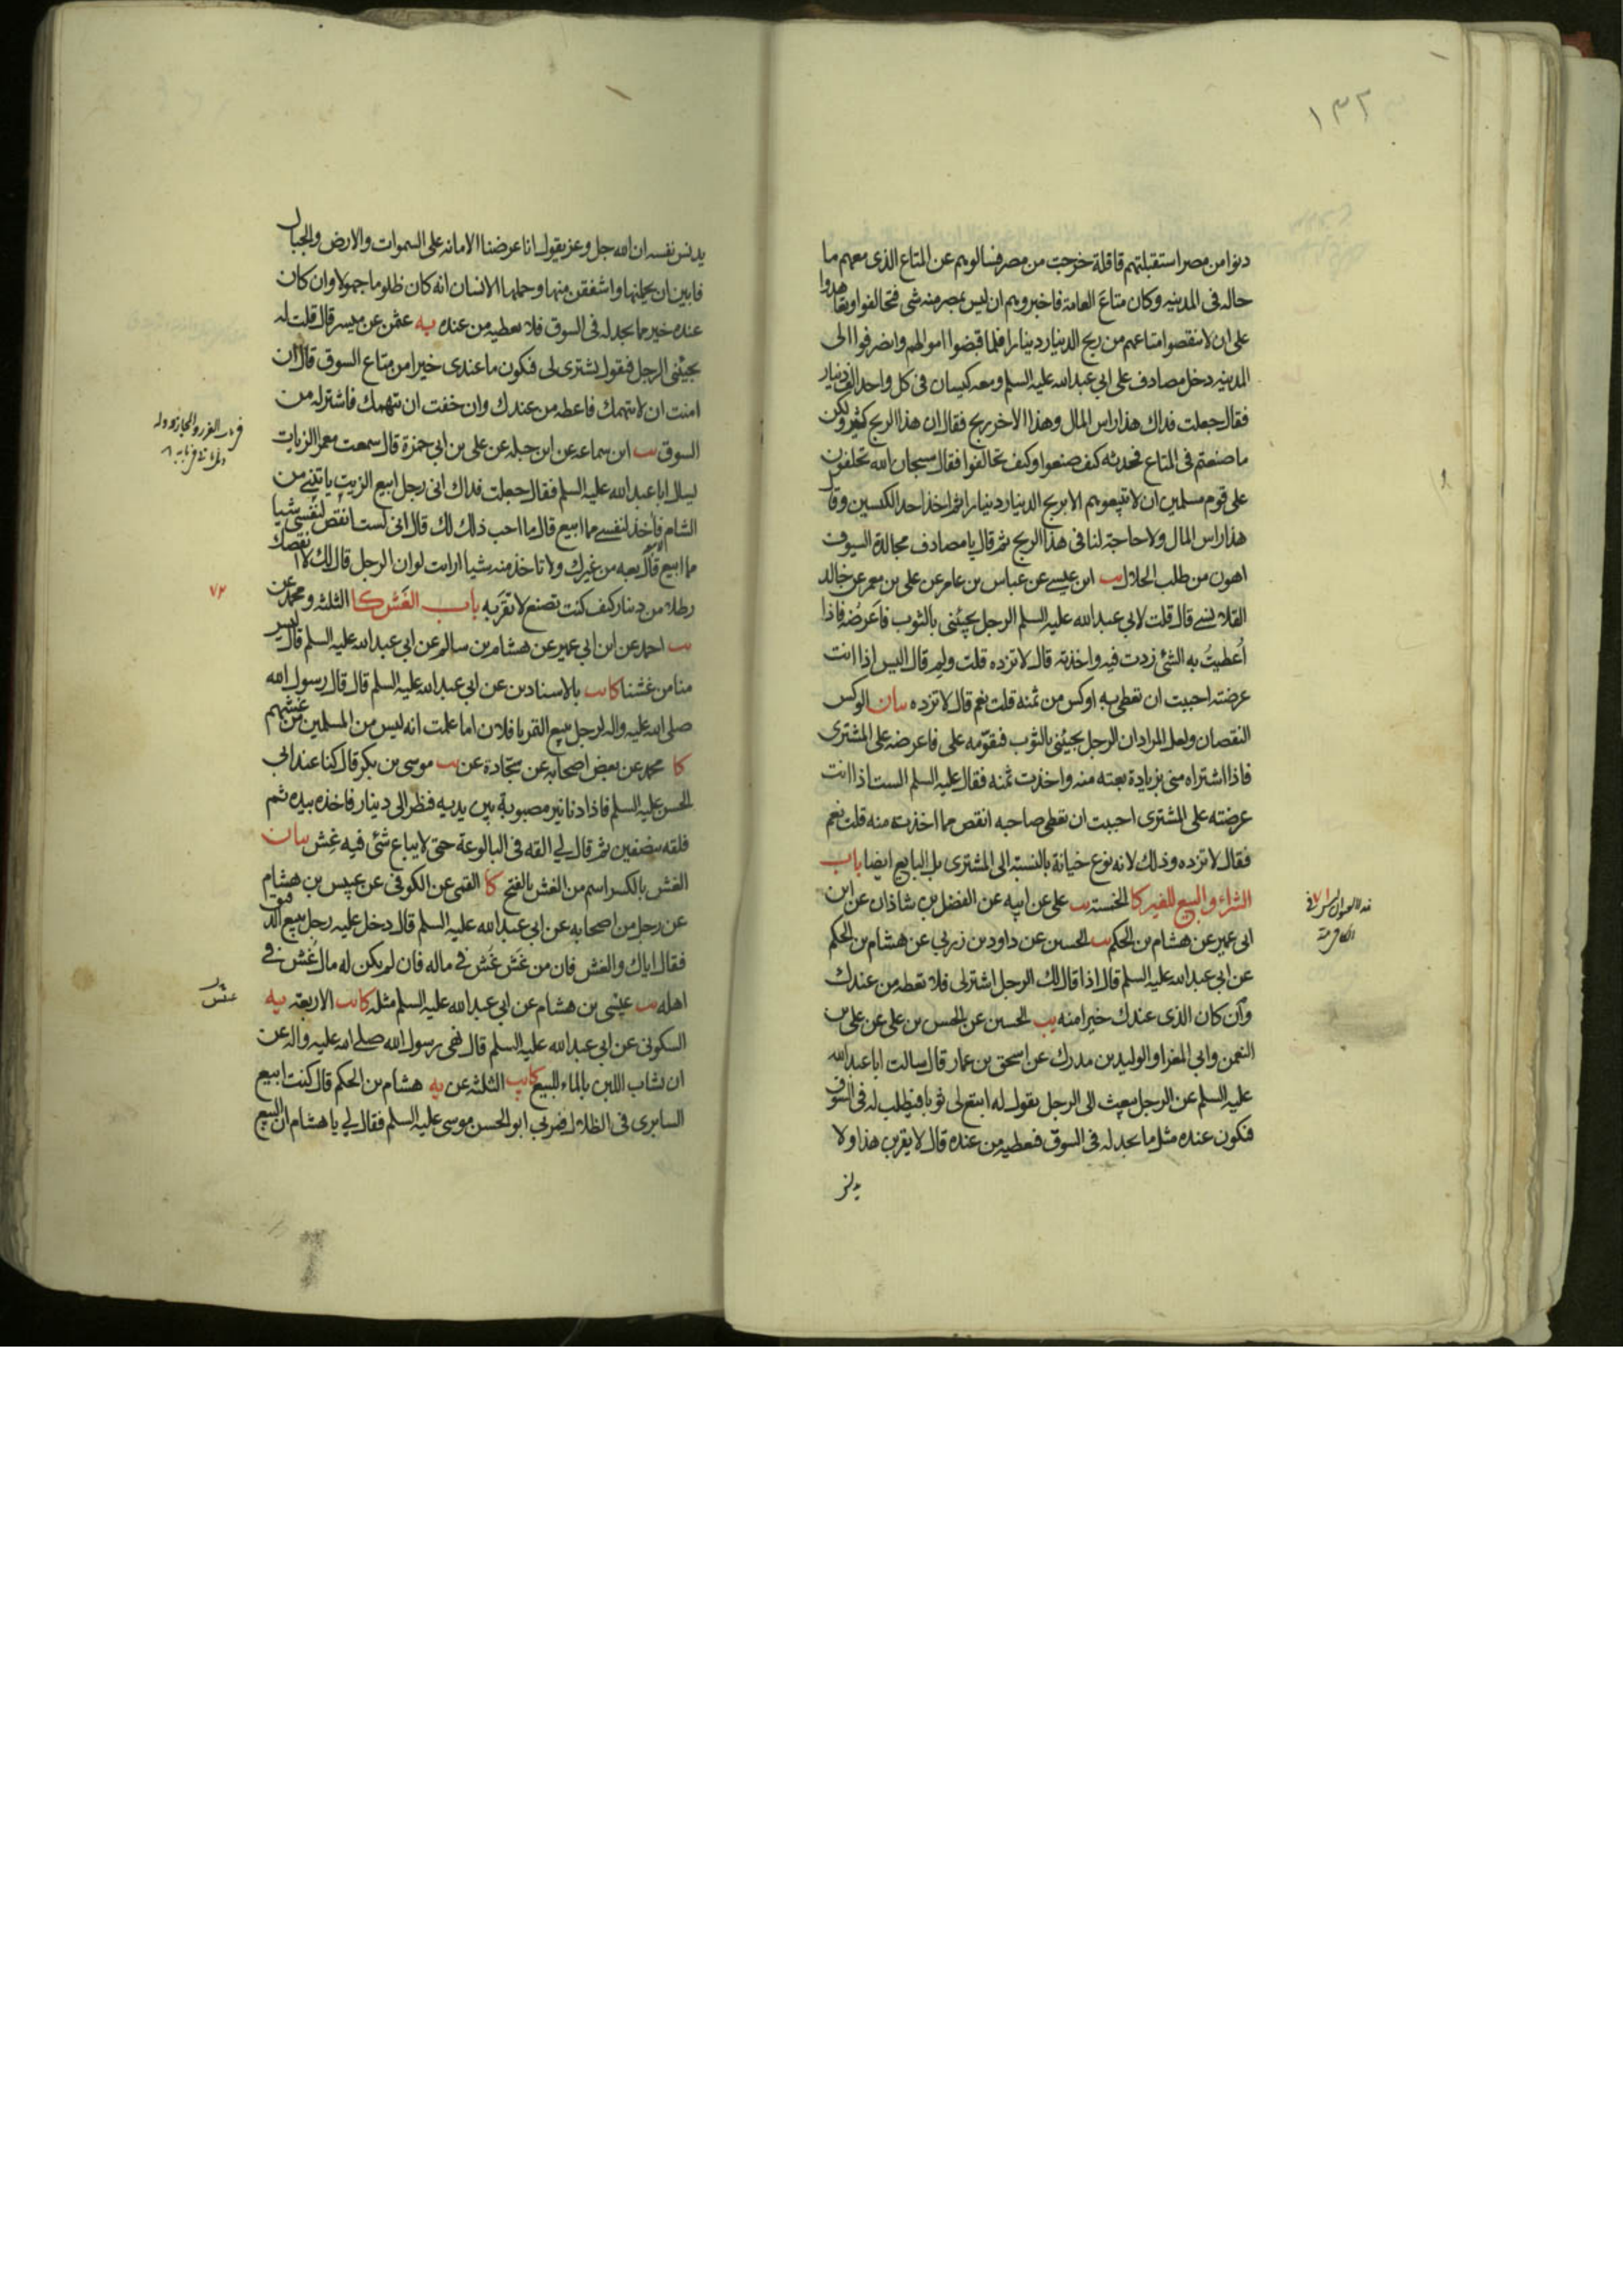 ١٣٢
دنوا من مصر استقبلتهم قافلة خرجت من مصر فسالوهم عن المتاع الذى معهم ما
حاله فى المدينه وكان متاع العامة فاخبروهم ان ليس بمصر منه شى فتحالفوا وتعاقدوا
على ان لا ينقصوا متاعهم من ربح الدينار دينارا فلما قبضوا اموالهم وانصرفوا الى
المدينه دخل مصادف على ابى عبدالله عليه السلم ومعه كيسان فى كل واحد الف دينار
فقال جعلت فداك هذا راس المال وهذا الاخر ربح فقال ان هذا الربح كثير ولكن
ما صنعتم فى المتاع فحدثه كيف صنعوا وكيف تحالفوا فقال سبحان الله تحلفون
على قوم مسلمين ان لا تبيعوهم الا بربح الدينار دينارا ثم اخذ احد الكيسين وقال
هذا راس المال ولا حاجة لنا فى هذا الربح ثم قال يا مصادف مجالدة السيوف
اهون من طلب الحلال يب ابن عيسى عن عباس بن عامر عن على بن معمر عن خالد
القلانسى قال قلت لابى عبدالله عليه السلم الرجل يجيئنى بالثوب فاعرضه فاذا
اعطيت به الشئ زدت فيه واخذته قال لا تزده قلت ولم قال اليس اذا انت
عرضته احببت ان تعطى به اوكس من ثمنه قلت نعم قال لا تزده بيان الوكس
النقصان ولعل المراد ان الرجل يجيئنى بالثوب فيقومه على فاعرضه على المشترى
فاذا اشتراه منى بزيادة بعته منه واخذت ثمنه فقال عليه السلم الست اذا انت
عرضته على المشترى احببت ان تعطى صاحبه انقص مما اخذت منه قلت نعم
فقال لا تزده وذلك لانه نوع خيانة بالنسبة الى المشترى بل البايع ايضا باب
الشراء والبيع للغير كا الخمسة يب على عن ابيه عن الفضل بن شاذان عن ابن
ابى عمير عن هشام بن الحكم يب الحسين عن داود بن زربى عن هشام بن الحكم
عن ابى عبدالله عليه السلم قال اذا قال لك الرجل اشتر لى فلا تعطه من عندك
وان كان الذى عندك خيرا منه يب الحسين عن الحسن بن على عن على بن
النعمن وابى المغرا والوليد بن مدرك عن اسحق بن عمار قال سالت ابا عبدالله
عليه السلم عن الرجل يبعث الى الرجل يقول له ابتع لى ثوبا فيطلب له فى السوق
فيكون عنده مثل ما يجد له فى السوق فيعطيه من عنده قال لا يقربن هذا ولا
يدنس
يدنس نفسه ان الله جل وعز يقول انا عرضنا الامانة على السموات والارض والجبال
فابين ان يحملنها واشفقن منها وحملها الانسان انه كان ظلوما جهولا وان كان
عنده خير مما يجد له فى السوق فلا يعطيه من عنده يه عثمن عن ميسر قال قلت له
يجيئنى الرجل فيقول يشترى لى فيكون ما عندى خيرا من متاع السوق قال ان
امنت ان لا يتهمك فاعطه من عندك وان خفت ان يتهمك فاشتر له من
السوق يب ابن سماعة عن ابن جبلة عن على بن ابى حمزة قال سمعت معمر الزيات
يسال ابا عبدالله عليه السلم فقال جعلت فداك انى رجل ابيع الزيت ياتينى من
الشام فآخذ لنفسى مما ابيع قال ما احب ذلك لك قال انى لست انقص لنفسى شيئا
مما ابيع قال بعه من غيرك ولا تاخذ منه شيئا ارايت لو ان الرجل قال لك لا انقصك
رطلا من دينار كيف كنت تصنع لا تقربه باب الغش كا الثلثه ومحمد عن
٧٢
يب احمد عن ابن ابى عمير عن هشام بن سالم عن ابى عبدالله عليه السلم قال ليس
منا من غشنا كا يب بالاسنادين عن ابى عبدالله عليه السلم قال قال رسول الله
صلى الله عليه واله لرجل يبيع التمر يا فلان اما علمت انه ليس من المسلمين من غشهم
كا محمد عن بعض اصحابه عن سجادة عن يب موسى بن بكر قال كنا عند ابى
الحسن عليه السلم فاذا دنانير مصبوبة بين يديه فنظر الى دينار فاخذه بيده ثم
فلقه بنصفين ثم قال لى القه فى البالوعة حتى لا يباع شئ فيه غش بيان
الغش بالكسر اسم من الغش بالفتح كا القمى عن الكوفى عن عبيس بن هشام
عن رجل من اصحابه عن ابى عبدالله عليه السلم قال دخل عليه رجل يبيع الدقيق
فقال اياك والغش فان من غش غش فى ماله فان لم يكن له مال غش فى
اهله يب عيسى بن هشام عن ابى عبدالله عليه السلم مثله كا يب الاربعة يه
السكونى عن ابى عبدالله عليه السلم قال نهى رسول الله صلى الله عليه واله عن
ان يشاب اللبن بالماء للبيع كا يب الثلثه عن يه هشام بن الحكم قال كنت ابيع
السابرى فى الظلال فمر بى ابو الحسن موسى عليه السلم فقال لى يا هشام ان البيع